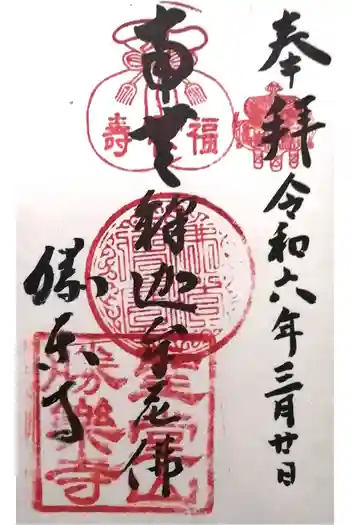 奉拝
令和六年三月廿日
福
壽
南無釋迦牟尼佛
勝楽寺
靈
山
勝樂寺